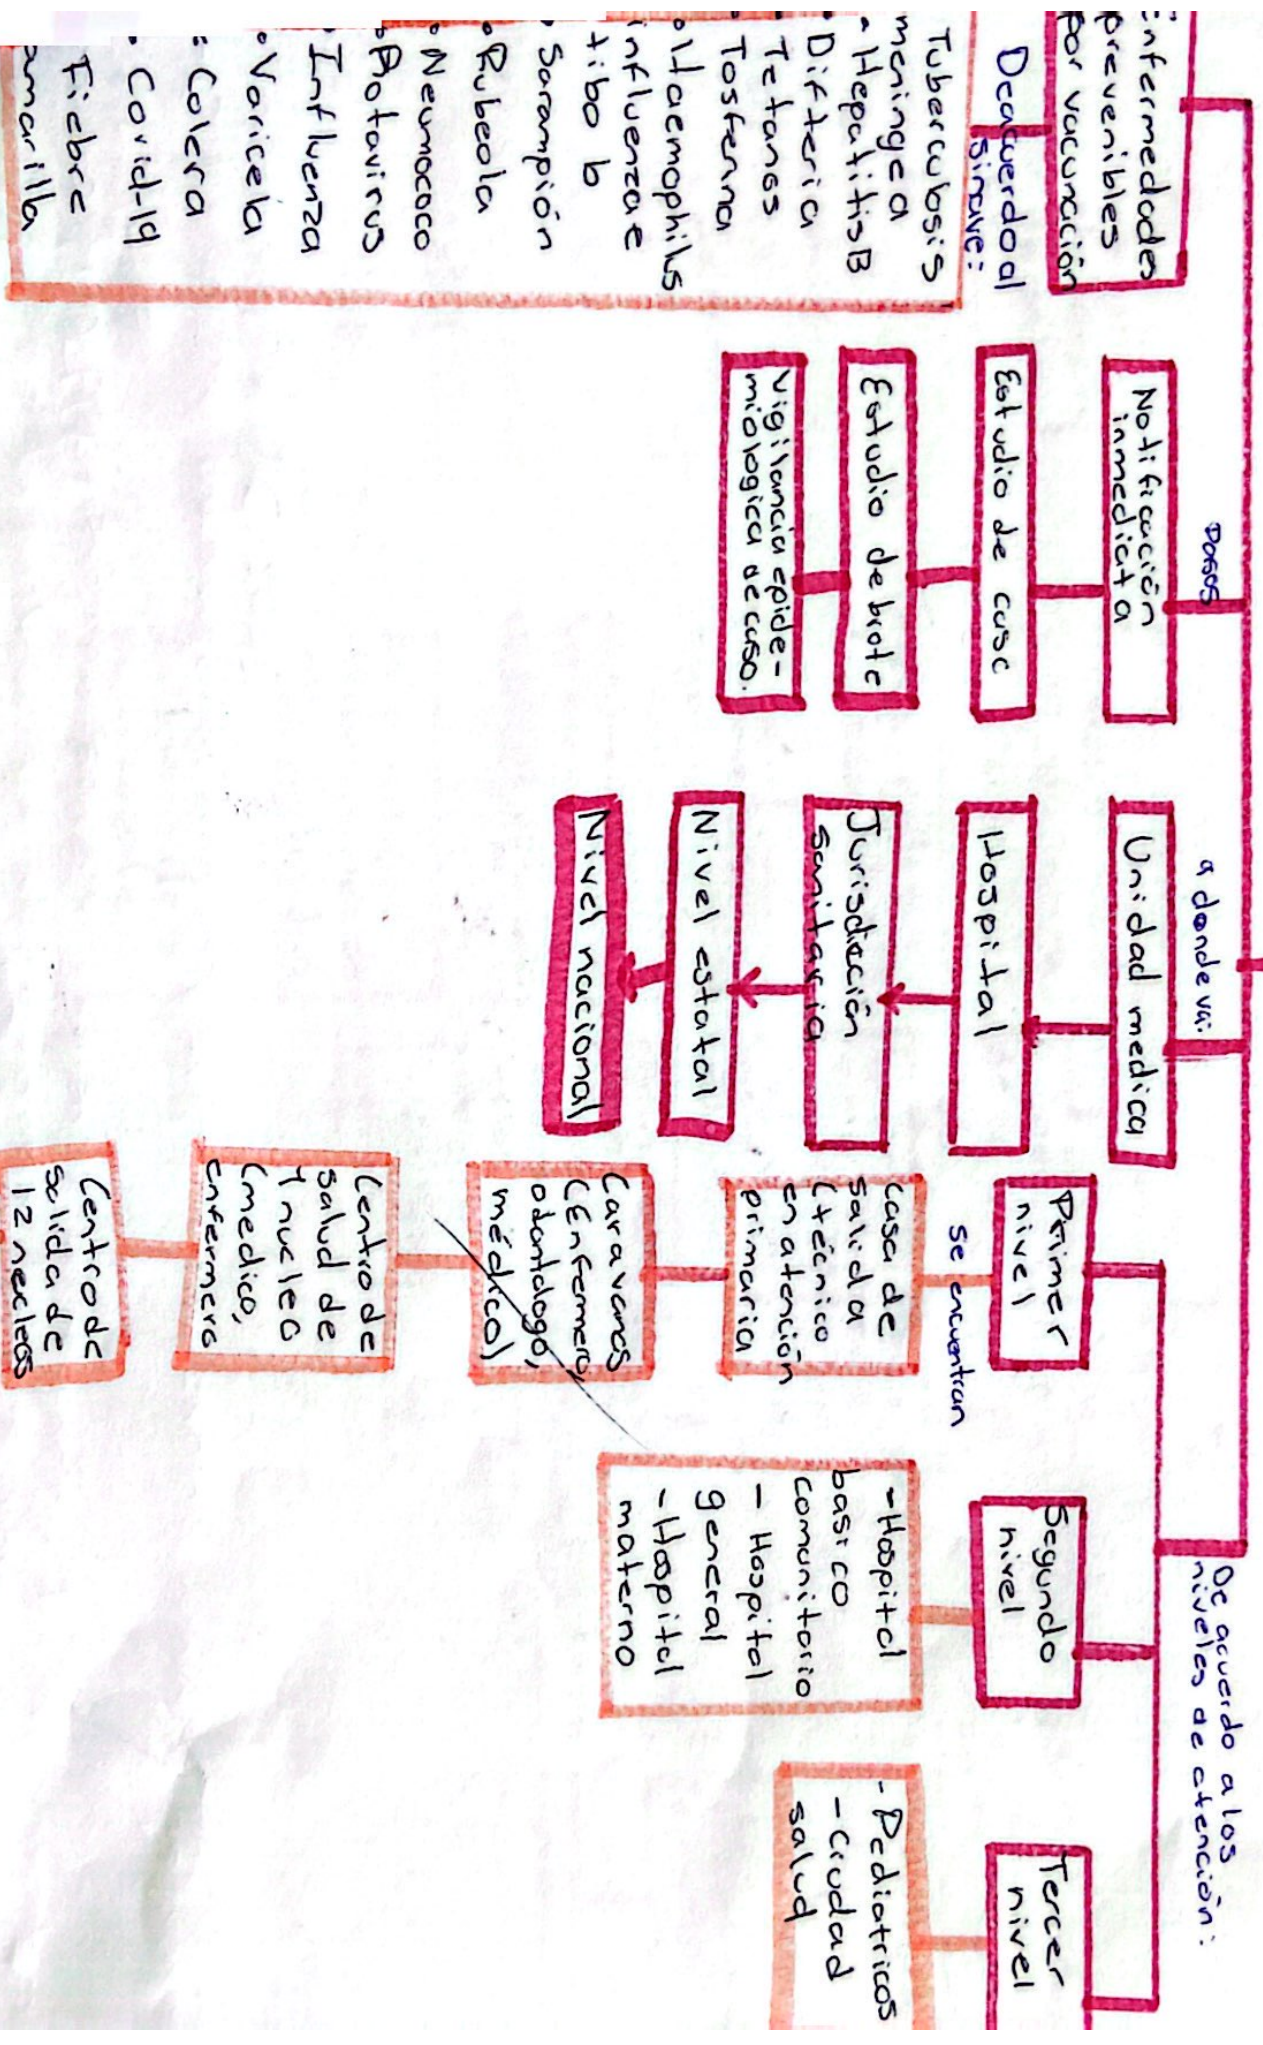 Enfermedades
prevenibles
por vacunación
Deacuerdo al
sinave:
Tuberculosis
meningea
- Hepatitis B
• Difteria
• Tetanos
• Tosferina
• Haemophilus
influenzae
tibo b
• Sarampión
• Rubeola
• Neumococo
• Rotavirus
• Influenza
• Varicela
• Colera
• Covid-19
Fiebre
amarilla
Pasos
Notificación
inmediata
Estudio de caso
Estudio de brote
Vigilancia epide-
miologica de caso.
a donde va:
Unidad medica
Hospital
Jurisdicción
Sanitaria
Nivel estatal
Nivel nacional
De acuerdo a los
niveles de atención:
Primer
nivel
se encuentran
Casa de
salida
(técnico
en atención
primaria
Caravanas
(Enfermero,
odontologo,
médico)
Centro de
salud de
1 nucleo
(medico,
enfermero
Centro de
salida de
12 necleos
Segundo
nivel
- Hospital
basico
comunitario
- Hospital
general
- Hospital
materno
Tercer
nivel
- Pediatricos
- Ciudad
salud